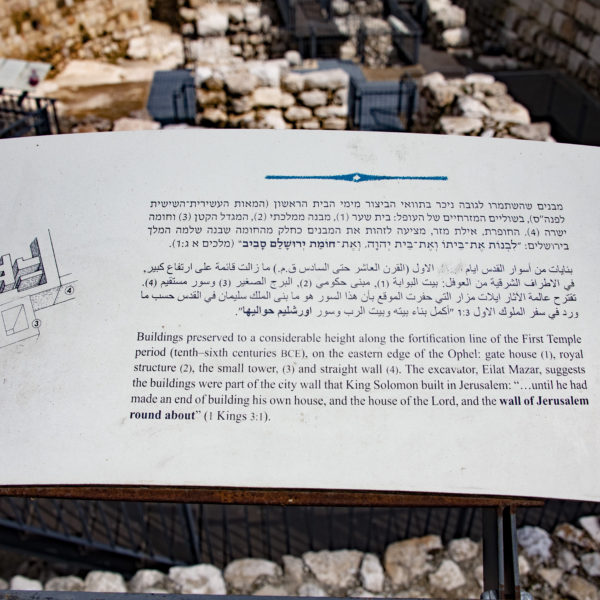 מבנים שהשתמרו לגובה ניכר בתוואי הביצור מימי הבית הראשון (המאות העשירית־השישית
לפנה"ס), בשוליים המזרחיים של העופל: בית שער (1), מבנה ממלכתי (2), המגדל הקטן (3) וחומה
ישרה (4). החופרת, אילת מזר, מציעה לזהות את המבנים כחלק מהחומה שבנה שלמה המלך
בירושלים: "לִבְנוֹת אֶת־בֵּיתוֹ וְאֶת־בֵּית יְהוָה, וְאֶת־חוֹמַת יְרוּשָׁלִַם סָבִיב" (מלכים א ג:1).
بنايات من أسوار القدس ايام الاول (القرن العاشر حتى السادس ق.م.) ما زالت قائمة على ارتفاع كبير,
في الاطراف الشرقية من العوفل: بيت البوابة (1), مبنى حكومي (2), البرج الصغير (3) وسور مستقيم (4).
تقترح عالمة الآثار ايلات مزار التي حفرت الموقع بأن هذا السور هو ما بنى الملك سليمان في القدس حسب ما
ورد في سفر الملوك الاول 1:3 "أكمل بناء بيته وبيت الرب وسور اورشليم حواليها".
Buildings preserved to a considerable height along the fortification line of the First Temple
period (tenth–sixth centuries BCE), on the eastern edge of the Ophel: gate house (1), royal
structure (2), the small tower, (3) and straight wall (4). The excavator, Eilat Mazar, suggests
the buildings were part of the city wall that King Solomon built in Jerusalem: “…until he had
made an end of building his own house, and the house of the Lord, and the wall of Jerusalem
round about” (1 Kings 3:1).
4
3